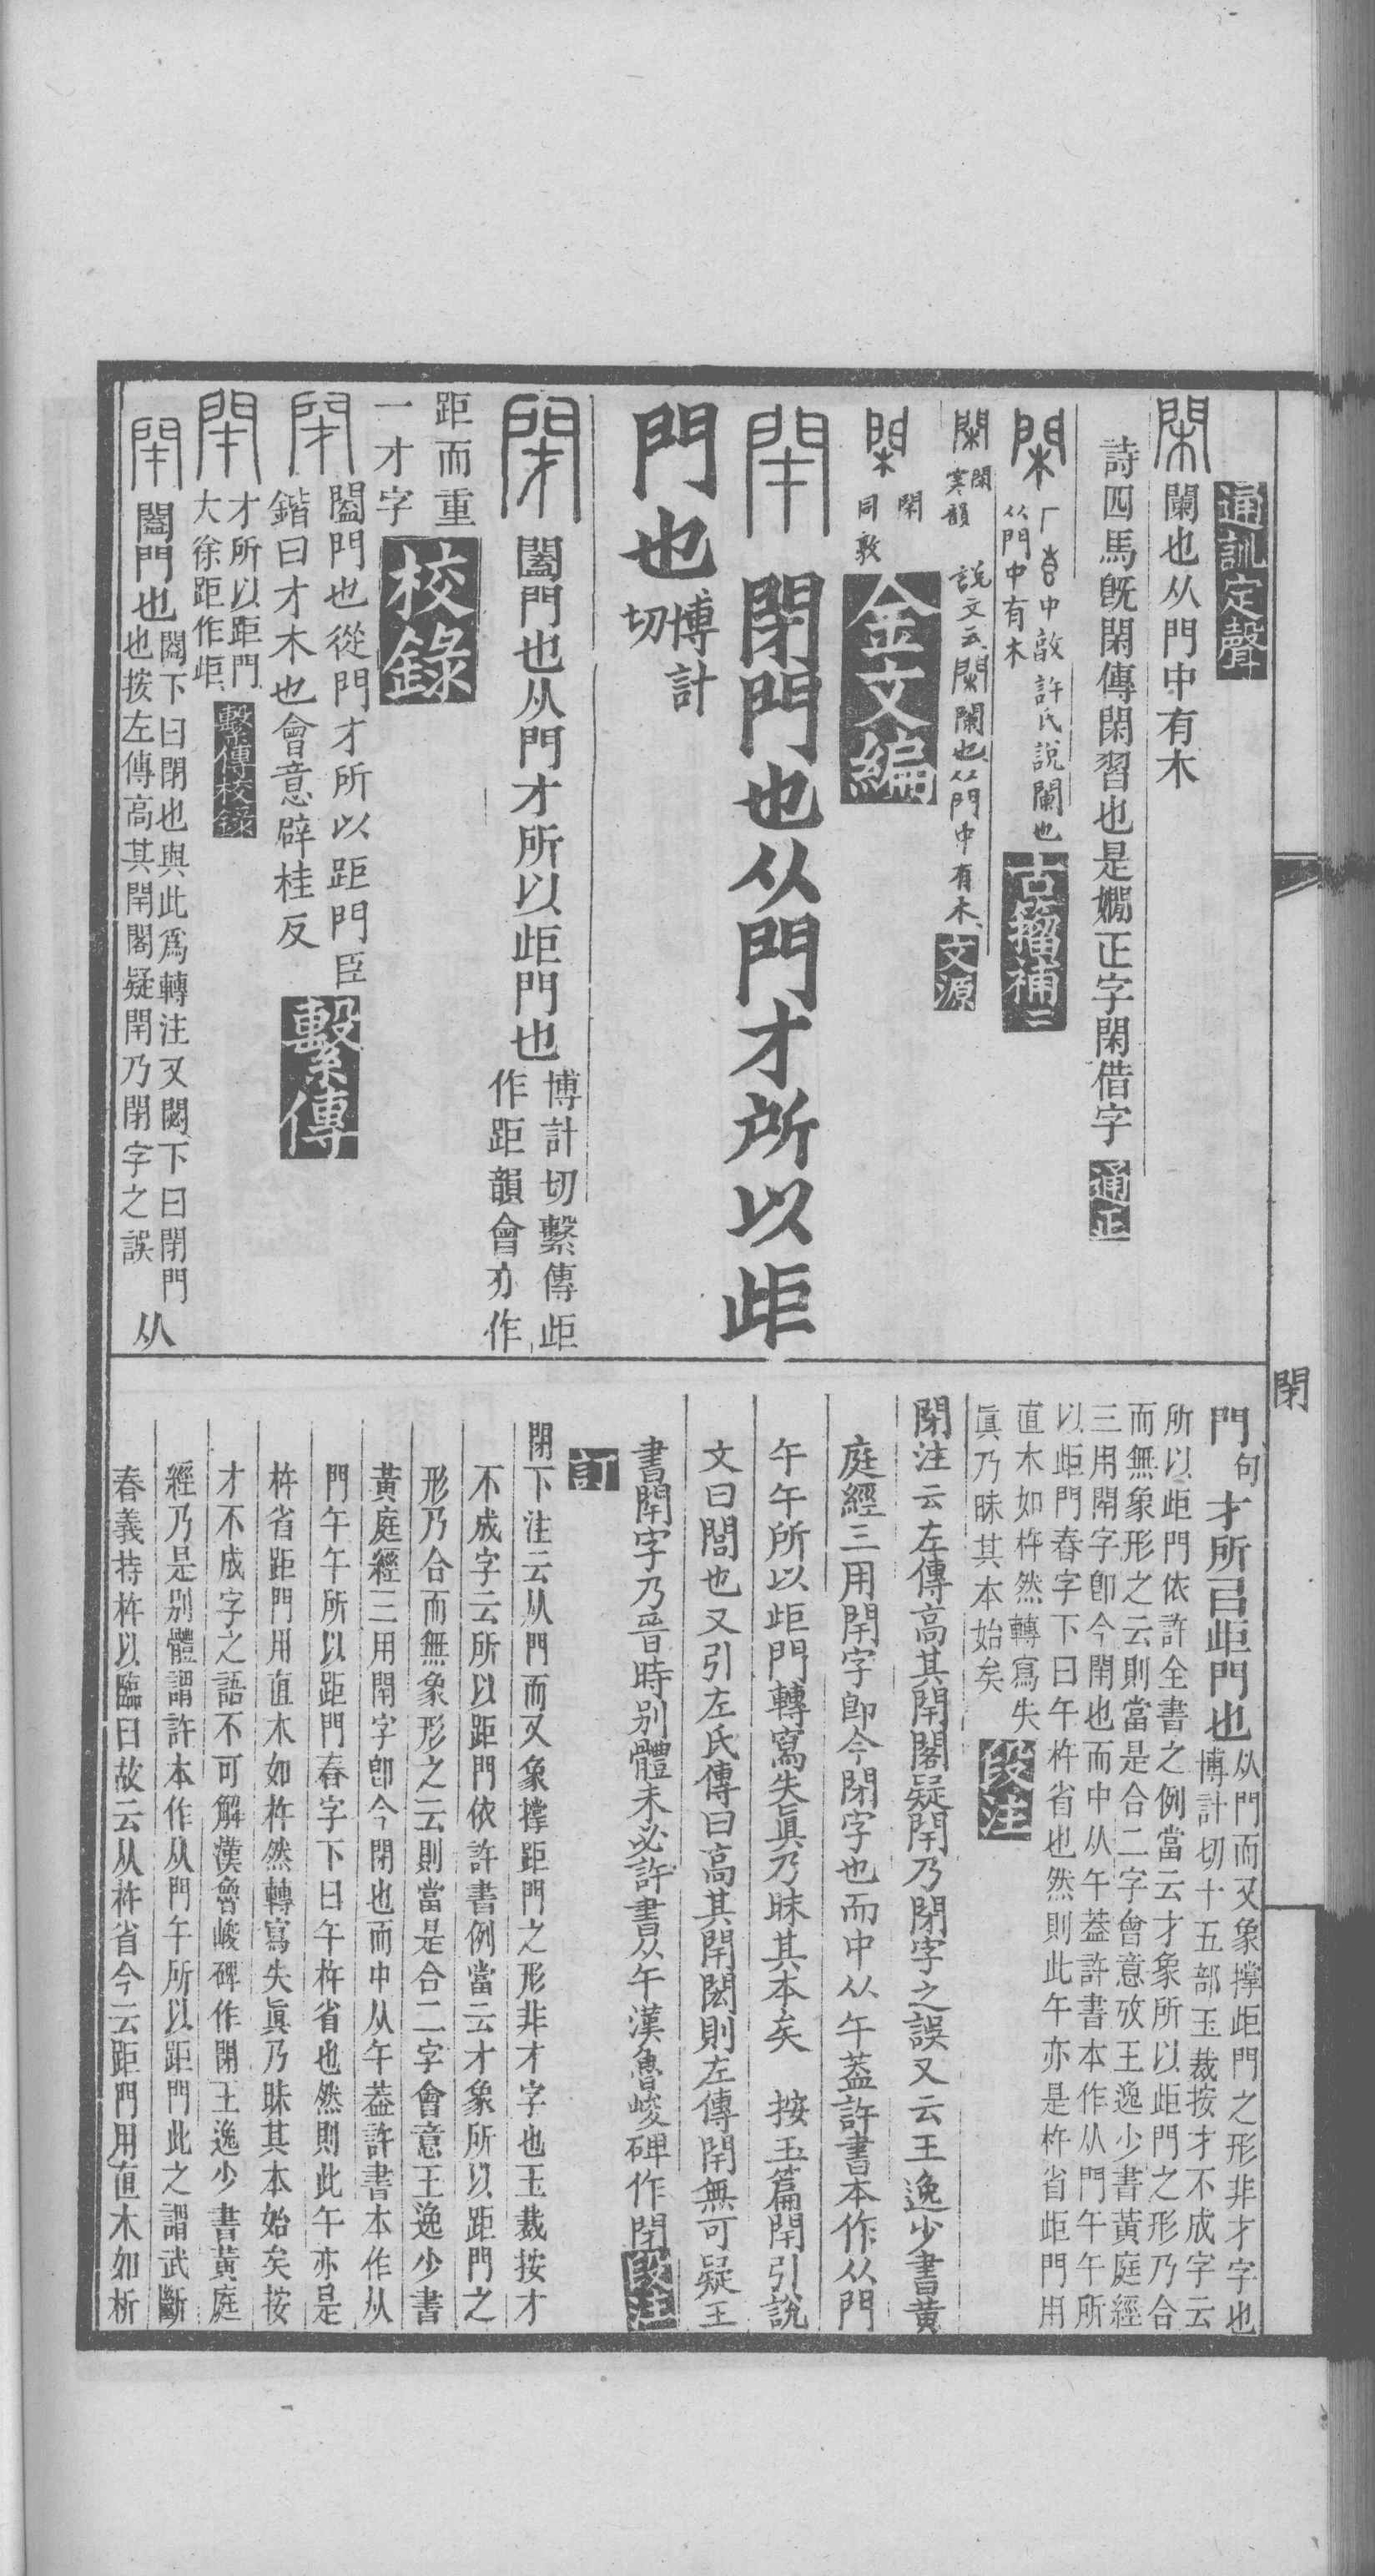 通訓定聲
閑闌也从門中有木
詩四馬旣閑傳閑習也是嫺正字閑借字 通正
閑
中敔許氏說闌也
从門中有木
古籀補二
閑閑
寒韻
說文云閑闌也从門中有木 文源
閑閑
同敦
金文編
閉 闔門也从門才所以歫
門也
博計
切
閉闔門也从門才所以歫門也
博計切繫傳歫
作距韻會亦作
距而重
一才字
校錄
閉闔門也從門才所以距門臣
鍇曰才木也會意辟桂反
繫傳
閉才所以距門
大徐距作歫
繫傳校錄
閉闔門也
闔下曰閉也與此爲轉注又閟下曰閉門
也按左傳高其閈閣疑閈乃閉字之誤
从
閉
門句才所㠯歫門也
从門而又象撑歫門之形非才字也
博計切十五部玉裁按才不成字云
所以歫門依許全書之例當云才象所以歫門之形乃合
而無象形之云則當是合二字會意攷王逸少書黃庭經
三用閈字卽今閉也而中从午葢許書本作从門午午所
以歫門舂字下曰午杵省也然則此午亦是杵省歫門用
直木如杵然轉寫失
眞乃昧其本始矣
段注
閉注云左傳高其閈閣疑閈乃閉字之誤又云王逸少書黃
庭經三用閈字卽今閉字也而中从午葢許書本作从門
午午所以歫門轉寫失眞乃昧其本矣 按玉篇閈引說
文曰閭也又引左氏傳曰高其閈閎則左傳閈無可疑王
書閈字乃晉時別體未必許書从午漢魯峻碑作閉 段注
訂
閉下注云从門而又象撑距門之形非才字也玉裁按才
不成字云所以距門依許書例當云才象所以距門之
形乃合而無象形之云則當是合二字會意王逸少書
黃庭經三用閈字卽今閉也而中从午葢許書本作从
門午午所以距門舂字下曰午杵省也然則此午亦是
杵省距門用直木如杵然轉寫失眞乃昧其本始矣按
才不成字之語不可解漢魯峻碑作閉王逸少書黃庭
經乃是別體謂許本作从門午所以距門此之謂武斷
舂義持杵以臨臼故云从杵省今云距門用直木如析